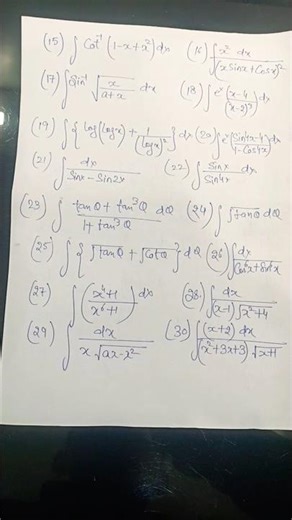 (15) ∫ Cot⁻¹ (1-x+x²) dx (16) ∫ x² dx / (x sinx + Cosx)²
(17) ∫ Sin⁻¹ √(x/(a+x)) dx (18) ∫ eˣ (x-4)/(x-2)³ dx
(19) ∫ { log(logx) + 1/(logx)² } dx (20) ∫ eˣ (Sin4x-4)/(1-Cos4x) dx
(21) ∫ dx/(Sinx - Sin2x) (22) ∫ Sinx/Sin4x dx
(23) ∫ (tanθ + tan³θ dθ)/(1+tan³θ) (24) ∫ √tanθ dθ
(25) ∫ { √tanθ + √Cotθ } dθ (26) ∫ dx/(Cos⁴x + Sin⁴x)
(27) ∫ (x⁴+1)/(x⁶+1) dx (28) ∫ dx/((x-1)√(x²+4))
(29) ∫ dx/(x √(ax-x²)) (30) ∫ (x+2) dx/((x²+3x+3) √(x+1))